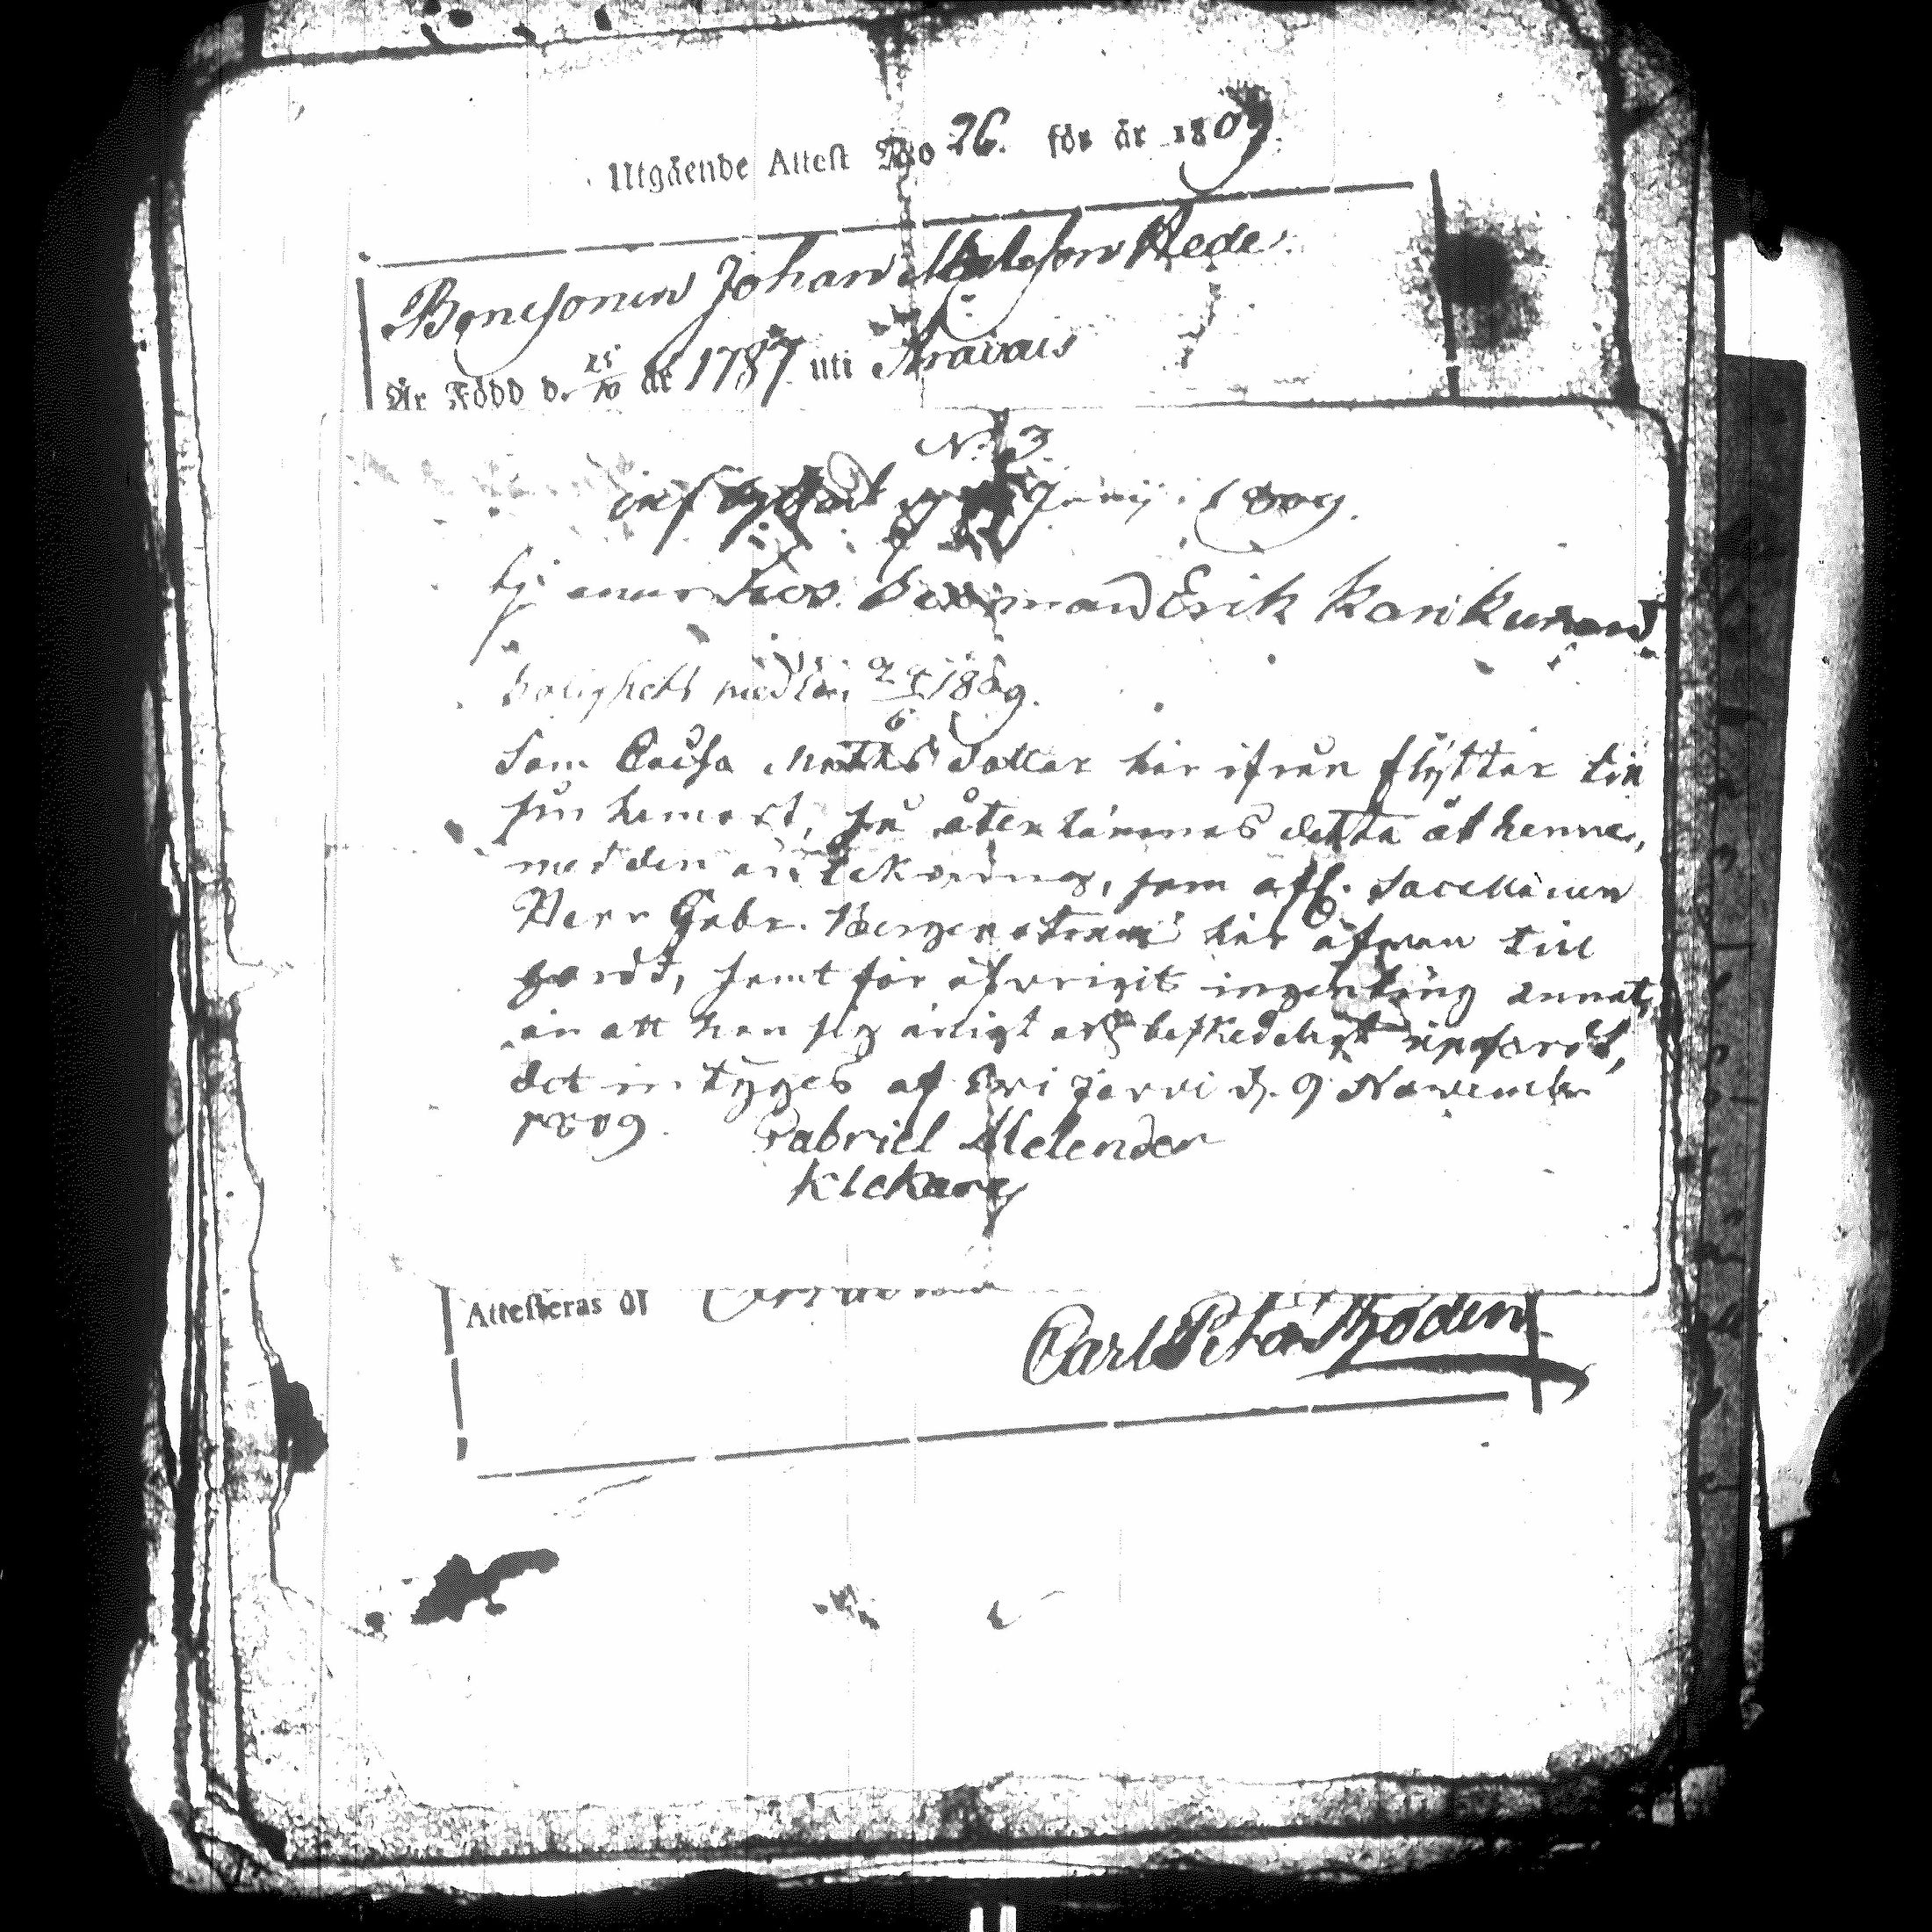 Utgående Attest No 26. för år 1809.
Bonesonen Johan Matsson Rede.
Är Född d. 25/10 år 1787 uti Oravais
N. 3.
inflyttat Junij 1809.
tjenar hos Erik Karikuran
24/6 1809.
Som Caisa Matts Dotter här ifrån flyttar till
sin hemort, så återlämnas detta åt henne,
med den anteckning, som afl. Sacellanen
Herr Gabr. Bergenstråm här åfvan till
gordt, samt för öfvrigit ingenting annat,
än att hon sig ärligt och beskedeligt uppfördt,
det intyges af Evijärvi d. 9 November
1809. Gabriel Melender
Klckare
Attesteras af
Carl Peter Thodén